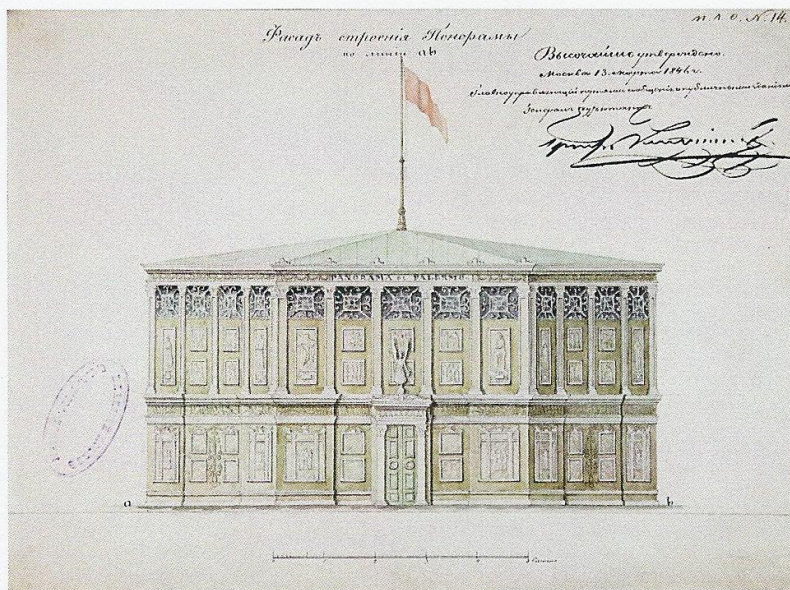 п. л. о. N. 14.
Фасадъ строенія Пѣнорамы
по линіи ab
Высочайше утверждено.
Москва 13 марта 1846 г.
Главноуправляющій путями сообщенія и публичными зданіями
Генералъ Адъютантъ
графъ
PANORAMA DE PALERMO
a
b